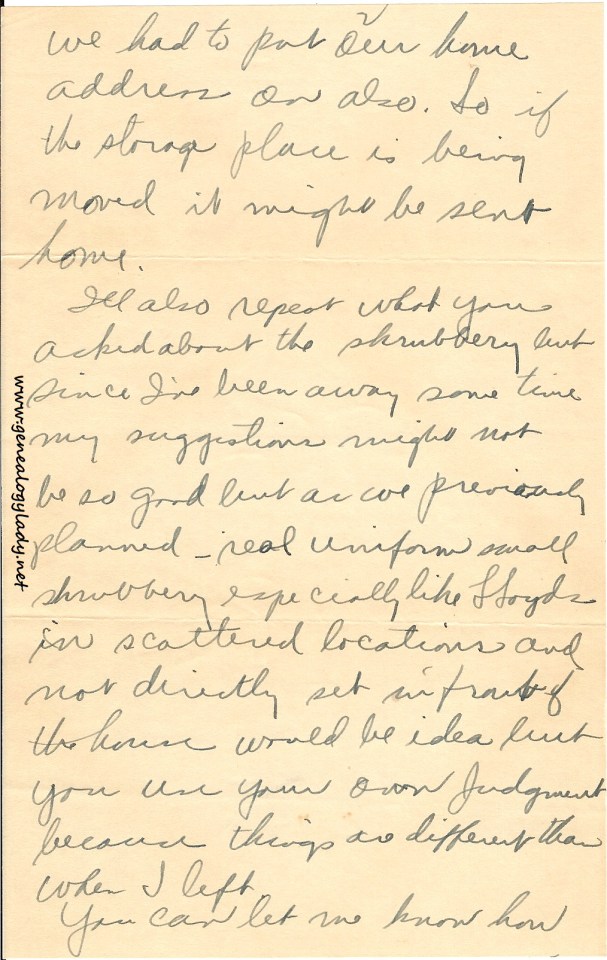 we had to put our home
address on also. So if
the storage place is being
moved it might be sent
home.
I'll also repeat what you
asked about the shrubbery but
since I've been away some time
my suggestions might not
be so good but as we previously
planned – real uniform small
shrubbery especially like Lloyds
in scattered locations and
not directly set in front of
the house would be idea but
you use your own judgment
because things are different than
when I left.
You can let me know how
www.genealogylady.net